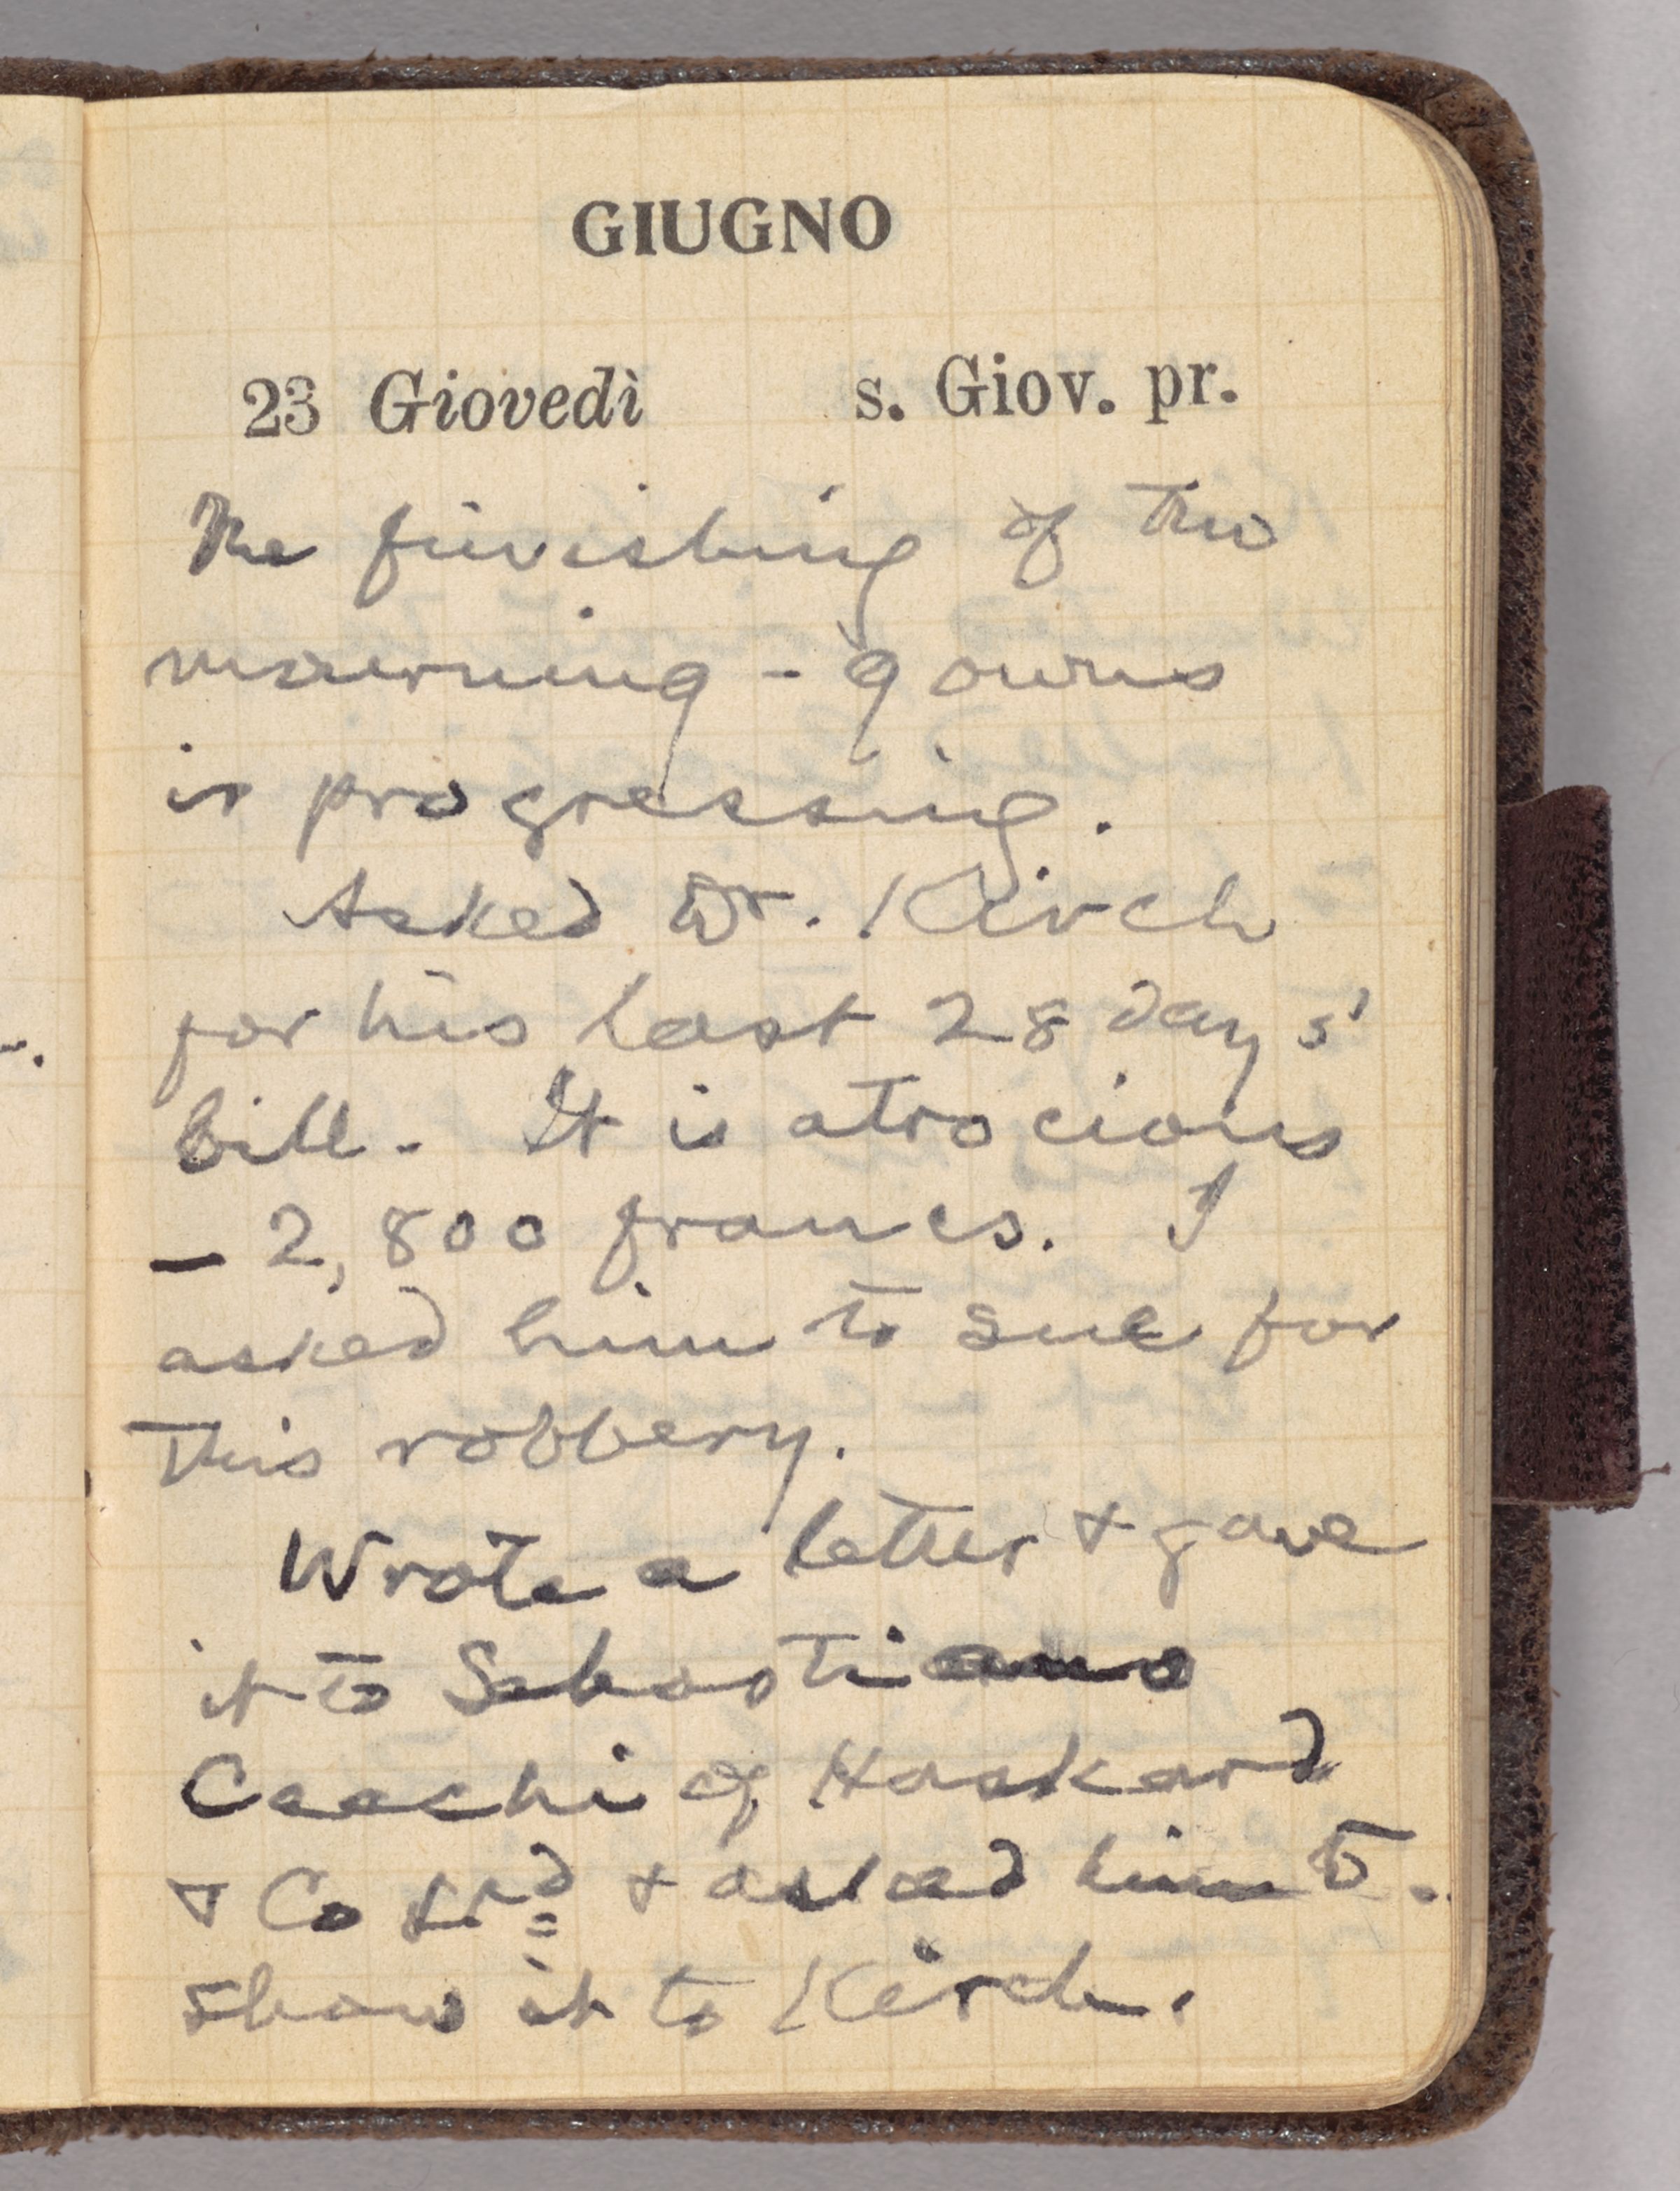 GIUGNO
23 Giovedì s. Giov. pr.
The finishing of two
mourning-gowns
is progressing.
Asked Dr. Kirch
for his last 28 days'
bill. It is atrocious
– 2,800 francs. I
asked him to sue for
this robbery.
Wrote a letter + gave
it to Sebastiano
Cecchi of Haskard
+ Co Ltd + asked him to
show it to Kirch.